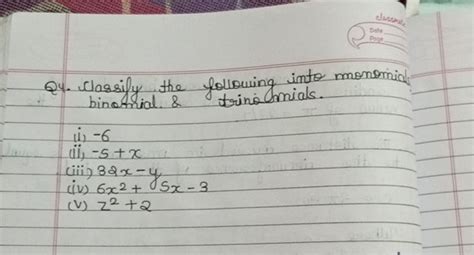 classmate
Date
Page
Q4. Classify the following into monomials
binomial & trinomials.
(i) -6
(ii) -5+x
(iii) 32x-y
(iv) 6x2+5x-3
(v) z²+2